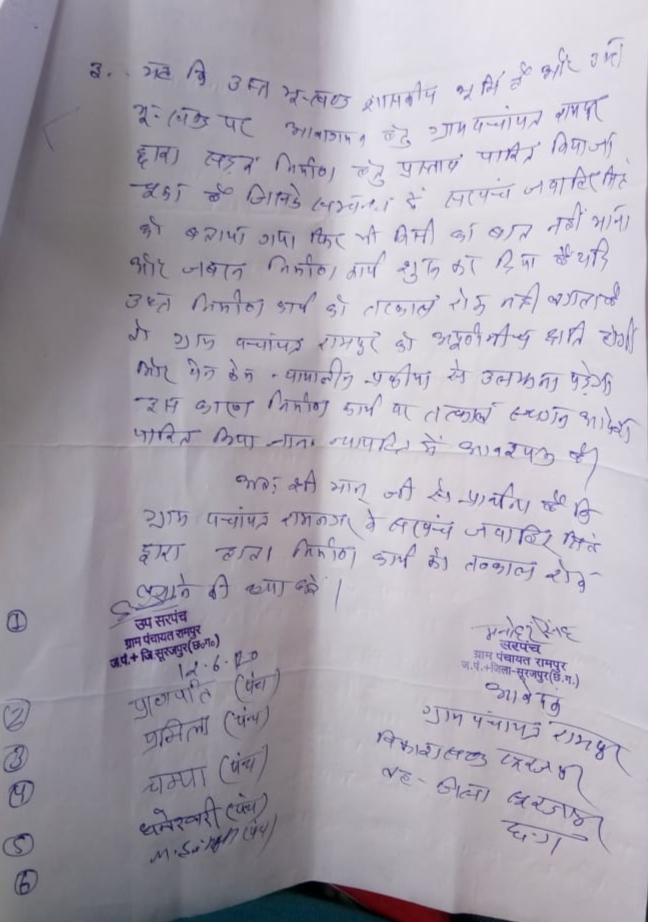 3. यह कि उक्त भू-खण्ड शासकीय भूमि है और उसी
भू-खण्ड पर आवागमन हेतु ग्राम पंचायत रामपुर
द्वारा सड़क निर्माण हेतु प्रस्ताव पारित किया जा
चुका है जिसके सम्बन्ध में सरपंच जवाहिर सिंह
को बताया गया फिर भी किसी का बात नहीं माना
और जबरन निर्माण कार्य शुरू कर दिया है यदि
उक्त निर्माण कार्य को तत्काल रोक नहीं लगता है
तो ग्राम पंचायत रामपुर को अपूर्णनीय क्षति होगी
और न्यायालीन प्रकीया से उलझना पड़ेगा
इस कारण निर्माण कार्य पर तत्काल स्थगन आदेश
पारित किया जाना न्यायहित में आवश्यक है।
अतः श्री मान् जी से प्रार्थना है कि
ग्राम पंचायत रामनगर के सरपंच जवाहिर सिंह
द्वारा निर्माण कार्य को तत्काल रोक
लगाने की कृपा करें।
① उप सरपंच
ग्राम पंचायत रामपुर
ज.पं.+ जि.सूरजपुर(छ.ग.)
12.6.20
मनोहर सिंह
सरपंच
ग्राम पंचायत रामपुर
ज.पं.+जिला-सूरजपुर(छ.ग.)
आवेदक
ग्राम पंचायत रामपुर
विकासखण्ड सूरजपुर
जिला सूरजपुर
छ.ग
② प्राणपति (पंच)
③ प्रमिला (पंच)
④ चम्पा (पंच)
⑤ धनेश्वरी (पंच)
⑥ (पंच)